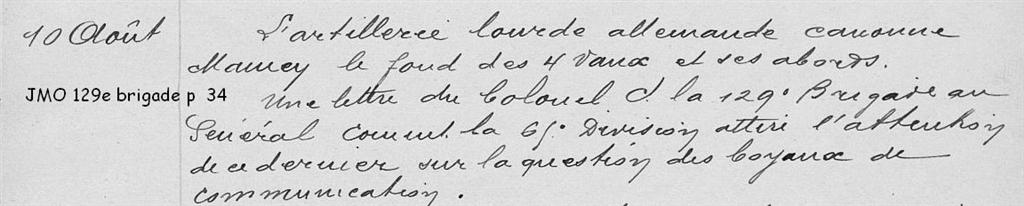 10 Août L'artillerie lourde allemande canonne
Mamey le fond des 4 Vaux et ses abords.
JMO 129e brigade p 34 Une lettre du Colonel Ct la 129e Brigade au
Général Commt la 65e Division attire l'attention
de ce dernier sur la question des boyaux de
communication.